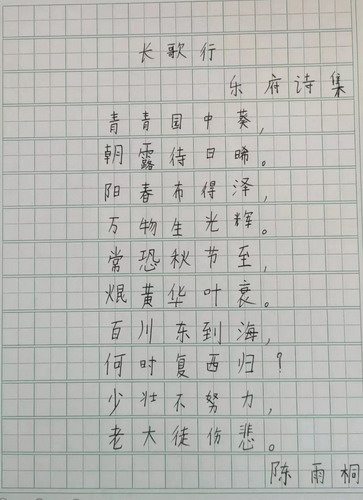 长歌行
乐府诗集
青青园中葵,
朝露待日晞。
阳春布得泽,
万物生光辉。
常恐秋节至,
焜黄华叶衰。
百川东到海,
何时复西归?
少壮不努力,
老大徒伤悲。
陈雨桐